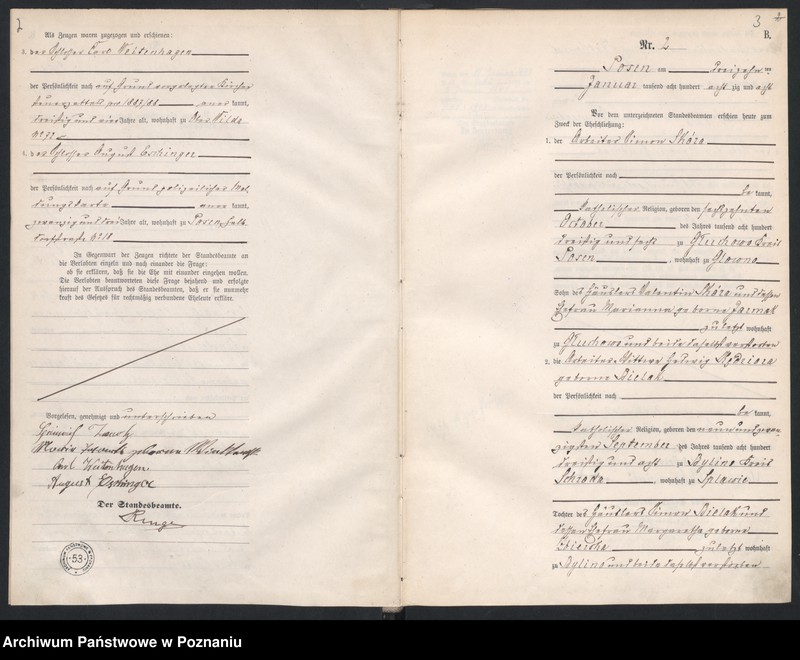 2
Als Zeugen waren zugezogen und erschienen:
3. der Schlosser Carl Weitenhagen
der Persönlichkeit nach auf Grund vorgelegten Kirchen
steuerzettels pro 1887/88 aner kannt,
dreißig und vier Jahre alt, wohnhaft zu Ober Wilda
No 73
4. der Schlosser August Eschinger
der Persönlichkeit nach auf Grund polizeilicher Mel
dungskarte aner kannt,
zwanzig und drei Jahre alt, wohnhaft zu Posen, Halb
dorfstraße No 18
In Gegenwart der Zeugen richtete der Standesbeamte an
die Verlobten einzeln und nach einander die Frage:
ob sie erklären, daß sie die Ehe mit einander eingehen wollen.
Die Verlobten beantworteten diese Frage bejahend und erfolgte
hierauf der Ausspruch des Standesbeamten, daß er sie nunmehr
kraft des Gesetzes für rechtmäßig verbundene Eheleute erkläre.
Vorgelesen, genehmigt und unterschrieben
Heinrich
geborene
Carl Weitenhagen.
August Eschinger
Der Standesbeamte.
53
3
B.
Nr. 2
Posen am dreizehn ten
Januar tausend acht hundert acht zig und acht
Vor dem unterzeichneten Standesbeamten erschien heute zum
Zweck der Eheschließung:
1. der Arbeiter Simon Skóra
der Persönlichkeit nach
be kannt,
katholischer Religion, geboren den sechszehnten
October des Jahres tausend acht hundert
dreißig und sechs zu Gluchowo Kreis
Posen, wohnhaft zu Glowno
Sohn des Häuslers Valentin Skóra und dessen
Ehefrau Marianna geborne Jarmak
zuletzt wohnhaft
zu Gluchowo und beide daselbst verstorben
2. die Arbeiter-Wittwe Hedwig
geborene Bielak
der Persönlichkeit nach
be kannt,
katholischer Religion, geboren den neun und zwan
zigsten September des Jahres tausend acht hundert
dreißig und acht zu Bylino Kreis
Schroda, wohnhaft zu Splawie
Tochter des Häuslers Simon Bielak und
dessen Ehefrau Margaretha geborne
zuletzt wohnhaft
zu Bylino und beide daselbst verstorben
Archiwum Państwowe w Poznaniu